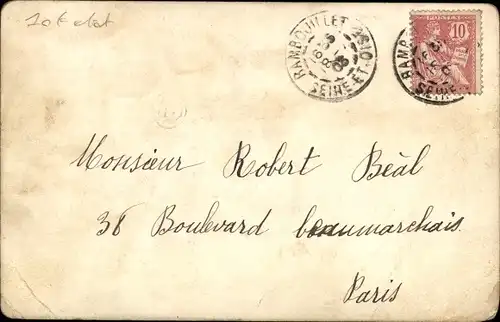 RAMBOUILLET
SEINE-ET-OISE
POSTES 10
RAMB
SEINE
Monsieur Robert Béal
38 Boulevard beaumarchais
Paris